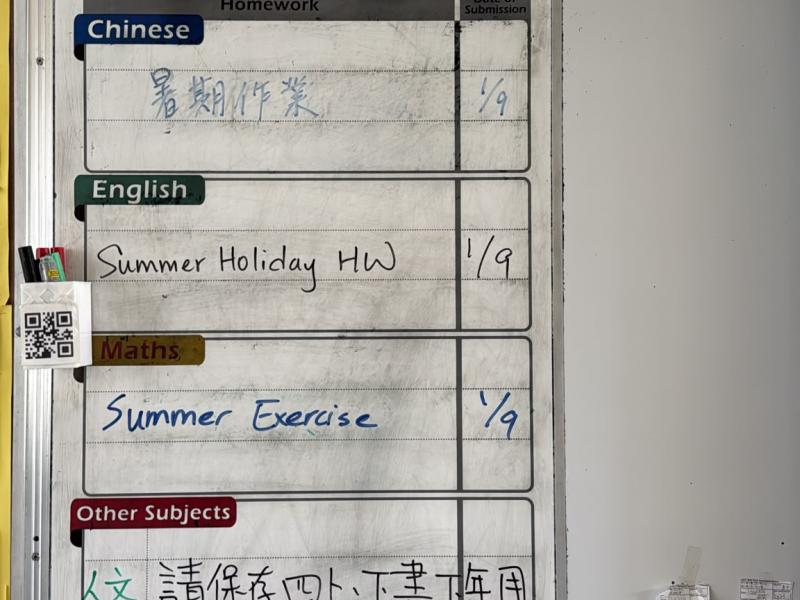 Homework
Date of
Submission
Chinese
暑期作業 1/9
English
Summer Holiday HW 1/9
Maths
Summer Exercise 1/9
Other Subjects
人文 請保存四上、下書下年用